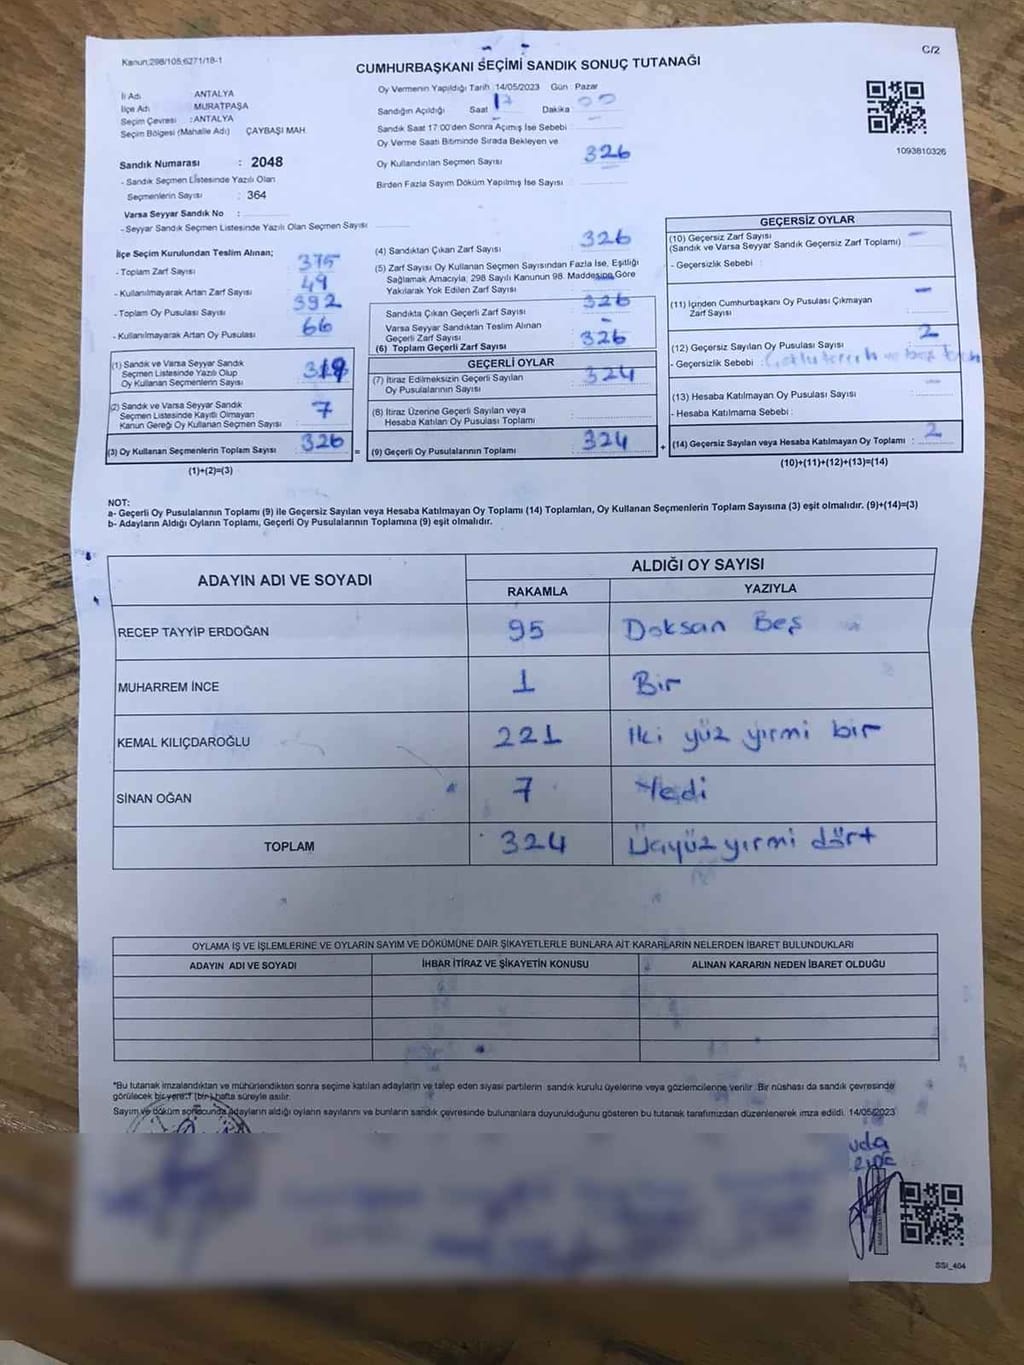 Kanun;298/105;6271/18-1
C/2
CUMHURBAŞKANI SEÇİMİ SANDIK SONUÇ TUTANAĞI
İl Adı ANTALYA
İlçe Adı MURATPAŞA
Seçim Çevresi : ANTALYA
Seçim Bölgesi (Mahalle Adı) ÇAYBAŞI MAH.
Sandık Numarası : 2048
- Sandık Seçmen Listesinde Yazılı Olan
Seçmenlerin Sayısı : 364
Varsa Seyyar Sandık No :
- Seyyar Sandık Seçmen Listesinde Yazılı Olan Seçmen Sayısı
Oy Vermenin Yapıldığı Tarih :14/05/2023 Gün : Pazar
Sandığın Açıldığı Saat 17 Dakika 00
Sandık Saat 17:00'den Sonra Açımış İse Sebebi
Oy Verme Saati Bitiminde Sırada Bekleyen ve
Oy Kullandırılan Seçmen Sayısı 326
Birden Fazla Sayım Döküm Yapılmış İse Sayısı
1093810326
İlçe Seçim Kurulundan Teslim Alınan;
- Toplam Zarf Sayısı 375
- Kullanılmayarak Artan Zarf Sayısı 49
- Toplam Oy Pusulası Sayısı 392
- Kullanılmayarak Artan Oy Pusulası 66
(1) Sandık ve Varsa Seyyar Sandık
Seçmen Listesinde Yazılı Olup
Oy Kullanan Seçmenlerin Sayısı 319
(2) Sandık ve Varsa Seyyar Sandık
Seçmen Listesinde Kayıtlı Olmayan
Kanun Gereği Oy Kullanan Seçmen Sayısı 7
(3) Oy Kullanan Seçmenlerin Toplam Sayısı 326
(1)+(2)=(3)
(4) Sandıktan Çıkan Zarf Sayısı 326
(5) Zarf Sayısı Oy Kullanan Seçmen Sayısından Fazla İse, Eşitliği
Sağlamak Amacıyla; 298 Sayılı Kanunun 98. Maddesine Göre
Yakılarak Yok Edilen Zarf Sayısı -
Sandıkta Çıkan Geçerli Zarf Sayısı 326
Varsa Seyyar Sandıktan Teslim Alınan
Geçerli Zarf Sayısı -
(6) Toplam Geçerli Zarf Sayısı 326
=
GEÇERLİ OYLAR
(7) İtiraz Edilmeksizin Geçerli Sayılan
Oy Pusulalarının Sayısı 324
(8) İtiraz Üzerine Geçerli Sayılan veya
Hesaba Katılan Oy Pusulası Toplamı
(9) Geçerli Oy Pusulalarının Toplamı 324
+
GEÇERSİZ OYLAR
(10) Geçersiz Zarf Sayısı -
(Sandık ve Varsa Seyyar Sandık Geçersiz Zarf Toplamı)
- Geçersizlik Sebebi :
(11) İçinden Cumhurbaşkanı Oy Pusulası Çıkmayan
Zarf Sayısı -
(12) Geçersiz Sayılan Oy Pusulası Sayısı 2
- Geçersizlik Sebebi : ve boş
(13) Hesaba Katılmayan Oy Pusulası Sayısı -
- Hesaba Katılmama Sebebi :
(14) Geçersiz Sayılan veya Hesaba Katılmayan Oy Toplamı : 2
(10)+(11)+(12)+(13)=(14)
NOT:
a- Geçerli Oy Pusulalarının Toplamı (9) ile Geçersiz Sayılan veya Hesaba Katılmayan Oy Toplamı (14) Toplamları, Oy Kullanan Seçmenlerin Toplam Sayısına (3) eşit olmalıdır. (9)+(14)=(3)
b- Adayların Aldığı Oyların Toplamı, Geçerli Oy Pusulalarının Toplamına (9) eşit olmalıdır.
ADAYIN ADI VE SOYADI ALDIĞI OY SAYISI
RAKAMLA YAZIYLA
RECEP TAYYİP ERDOĞAN 95 Doksan Beş
MUHARREM İNCE 1 Bir
KEMAL KILIÇDAROĞLU 221 İki yüz yirmi bir
SİNAN OĞAN 7 Yedi
TOPLAM 324 Üçyüz yirmi dört
OYLAMA İŞ VE İŞLEMLERİNE VE OYLARIN SAYIM VE DÖKÜMÜNE DAİR ŞİKAYETLERLE BUNLARA AİT KARARLARIN NELERDEN İBARET BULUNDUKLARI
ADAYIN ADI VE SOYADI İHBAR İTİRAZ VE ŞİKAYETİN KONUSU ALINAN KARARIN NEDEN İBARET OLDUĞU
*Bu tutanak imzalandıktan ve mühürlendikten sonra seçime katılan adayların ve talep eden siyasi partilerin sandık kurulu üyelerine veya gözlemcilerine verilir. Bir nüshası da sandık çevresinde
görülecek bir yere 1 (bir) hafta süreyle asılır.
Sayım ve döküm sonucunda adayların aldığı oyların sayılarını ve bunların sandık çevresinde bulunanlara duyurulduğunu gösteren bu tutanak tarafımızdan düzenlenerek imza edildi. 14/05/2023
SSI_404